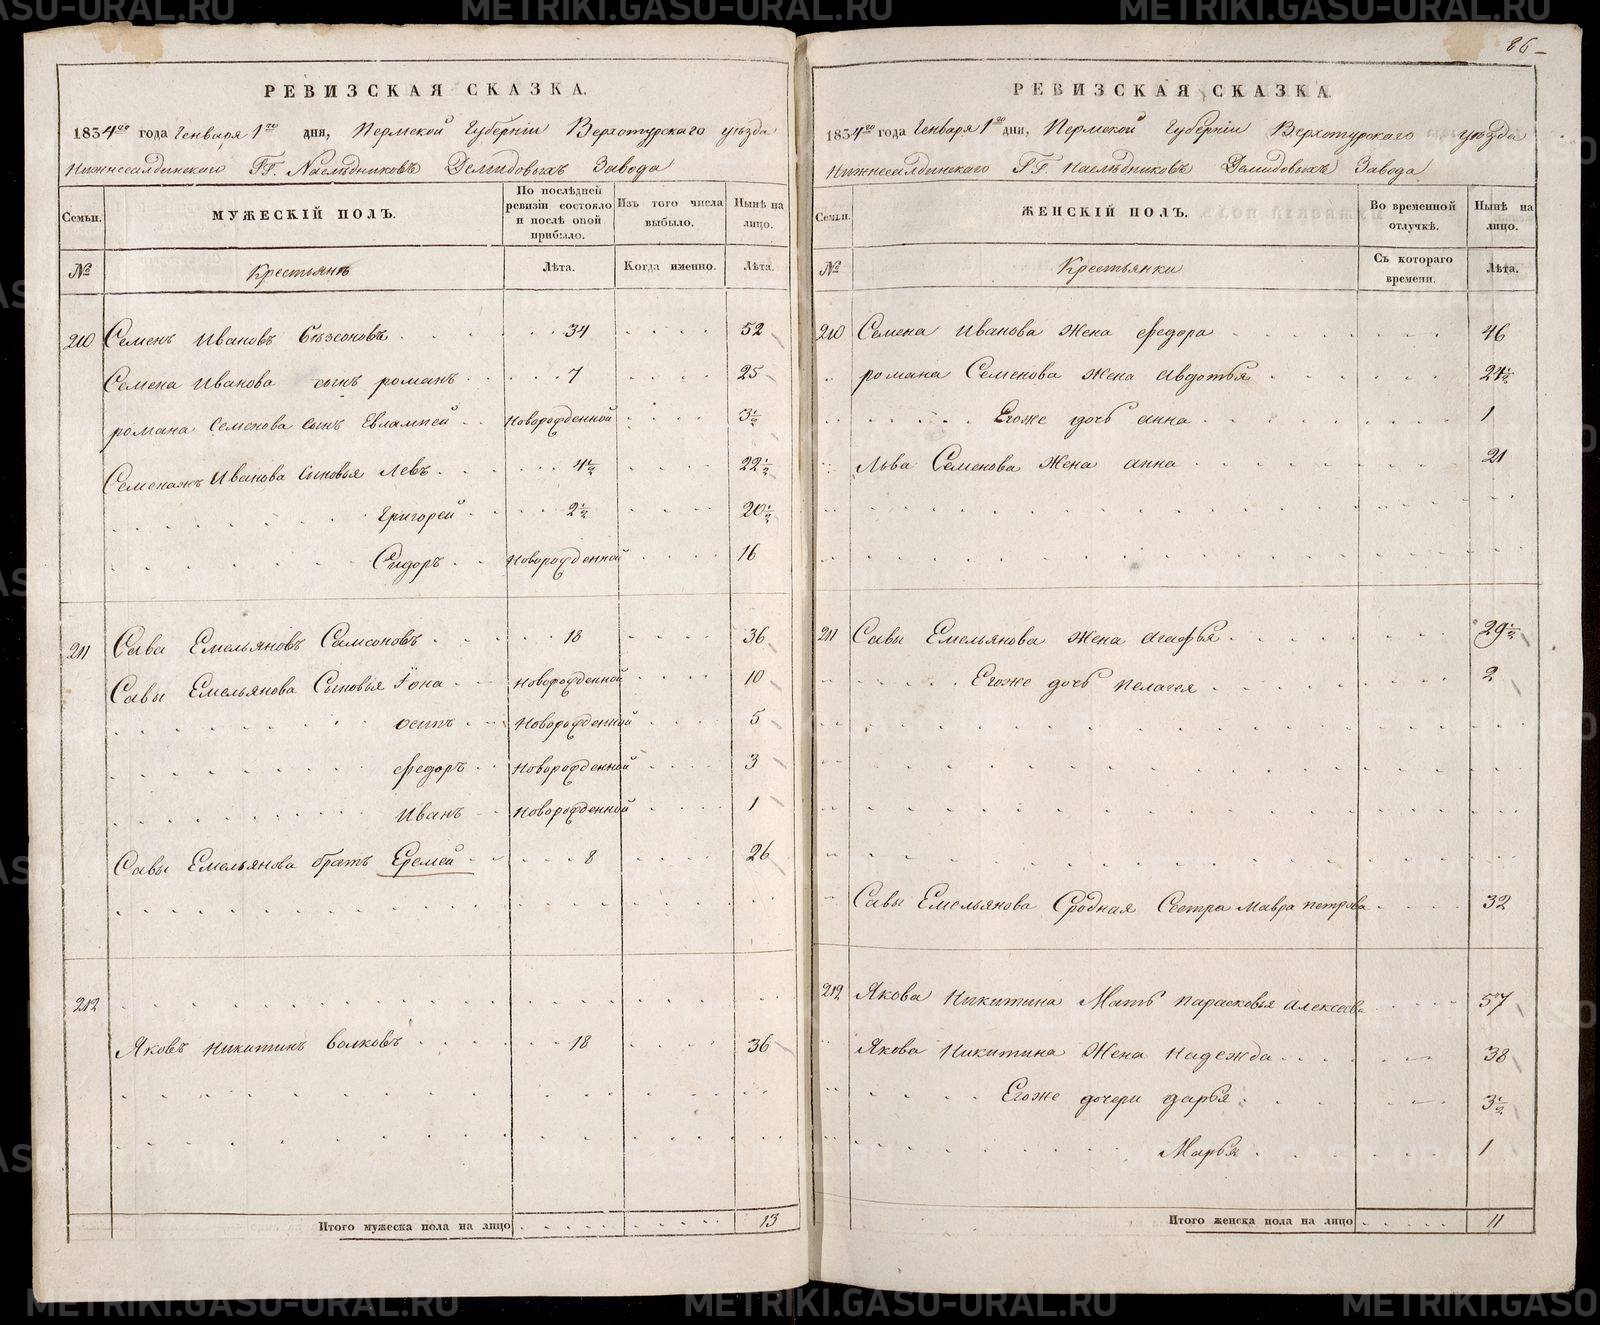 86
РЕВИЗСКАЯ СКАЗКА.
1834го года Генваря 1го дня, Пермской Губернїи Верхотурскаго уѣзда
Нижнесалдинскаго ГГ. Наслѣдниковъ Демидовыхъ Завода
Семьи. МУЖЕСКІЙ ПОЛЪ. По послѣдней ревизіи состояло и послѣ оной прибыло. Изъ того числа выбыло. Нынѣ на лицо.
№ Крестьянъ Лѣта. Когда именно. Лѣта.
210 Семенъ Ивановъ 34 52
Семена Иванова сынъ романъ 7 25
романа Семенова сынъ Евлампей новорожденной 3½
Семенажъ Иванова сыновья Левъ 4½ 22½
Григорей 2½ 20½
Сидоръ новорожденной 16
211 Сава Емельяновъ Самсоновъ 18 36
Савы Емельянова Сыновья Їона новорожденной 10
осипъ новорожденной 5
федоръ новорожденной 3
Иванъ новорожденной 1
Савы Емельянова братъ Еремей 8 26
212
Яковъ никитинъ волковъ 18 36
Итого мужеска пола на лицо 13
РЕВИЗСКАЯ СКАЗКА
1834го года Генваря 1го дня, Пермской Губернїи Верхотурскаго уѣзда
Нижнесалдинскаго ГГ. наслѣдниковъ Демидовыхъ Завода
Семьи. ЖЕНСКІЙ ПОЛЪ. Во временной отлучкѣ. Нынѣ на лицо.
№ Крестьянки Съ котораго времени. Лѣта.
210 Семена Иванова жена федора 46
романа Семенова жена авдотья 24½
Егоже дочь анна 1
Льва Семенова жена анна 21
211 Савы Емельянова жена агафья 29½
Егоже дочь пелагея 2
Савы Емельянова Сродная Сестра мавра петрова 32
212 Якова Никитина Мать парасковья алексеева 57
Якова Никитина жена надежда 38
Егоже дочери дарья 3½
Марья 1
Итого женска пола на лицо 11
METRIKI.GASU-URAL.RU